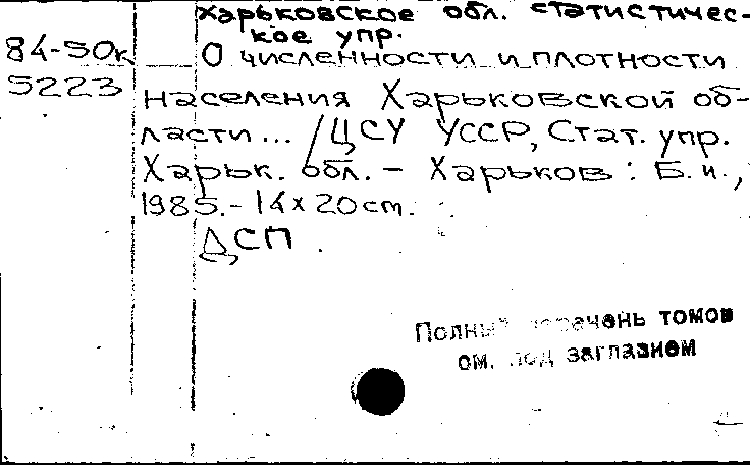 Харьковское обл. статистичес-
кое упр.
84-50к О численности и плотности
5223 населения Харьковской об-
ласти... /ЦСУ УССР, Стат. упр.
Харьк. обл. – Харьков : Б.и.,
1985. – 14 x 20 cm.
ДСП.
Полный перечень томов
см. под заглавием